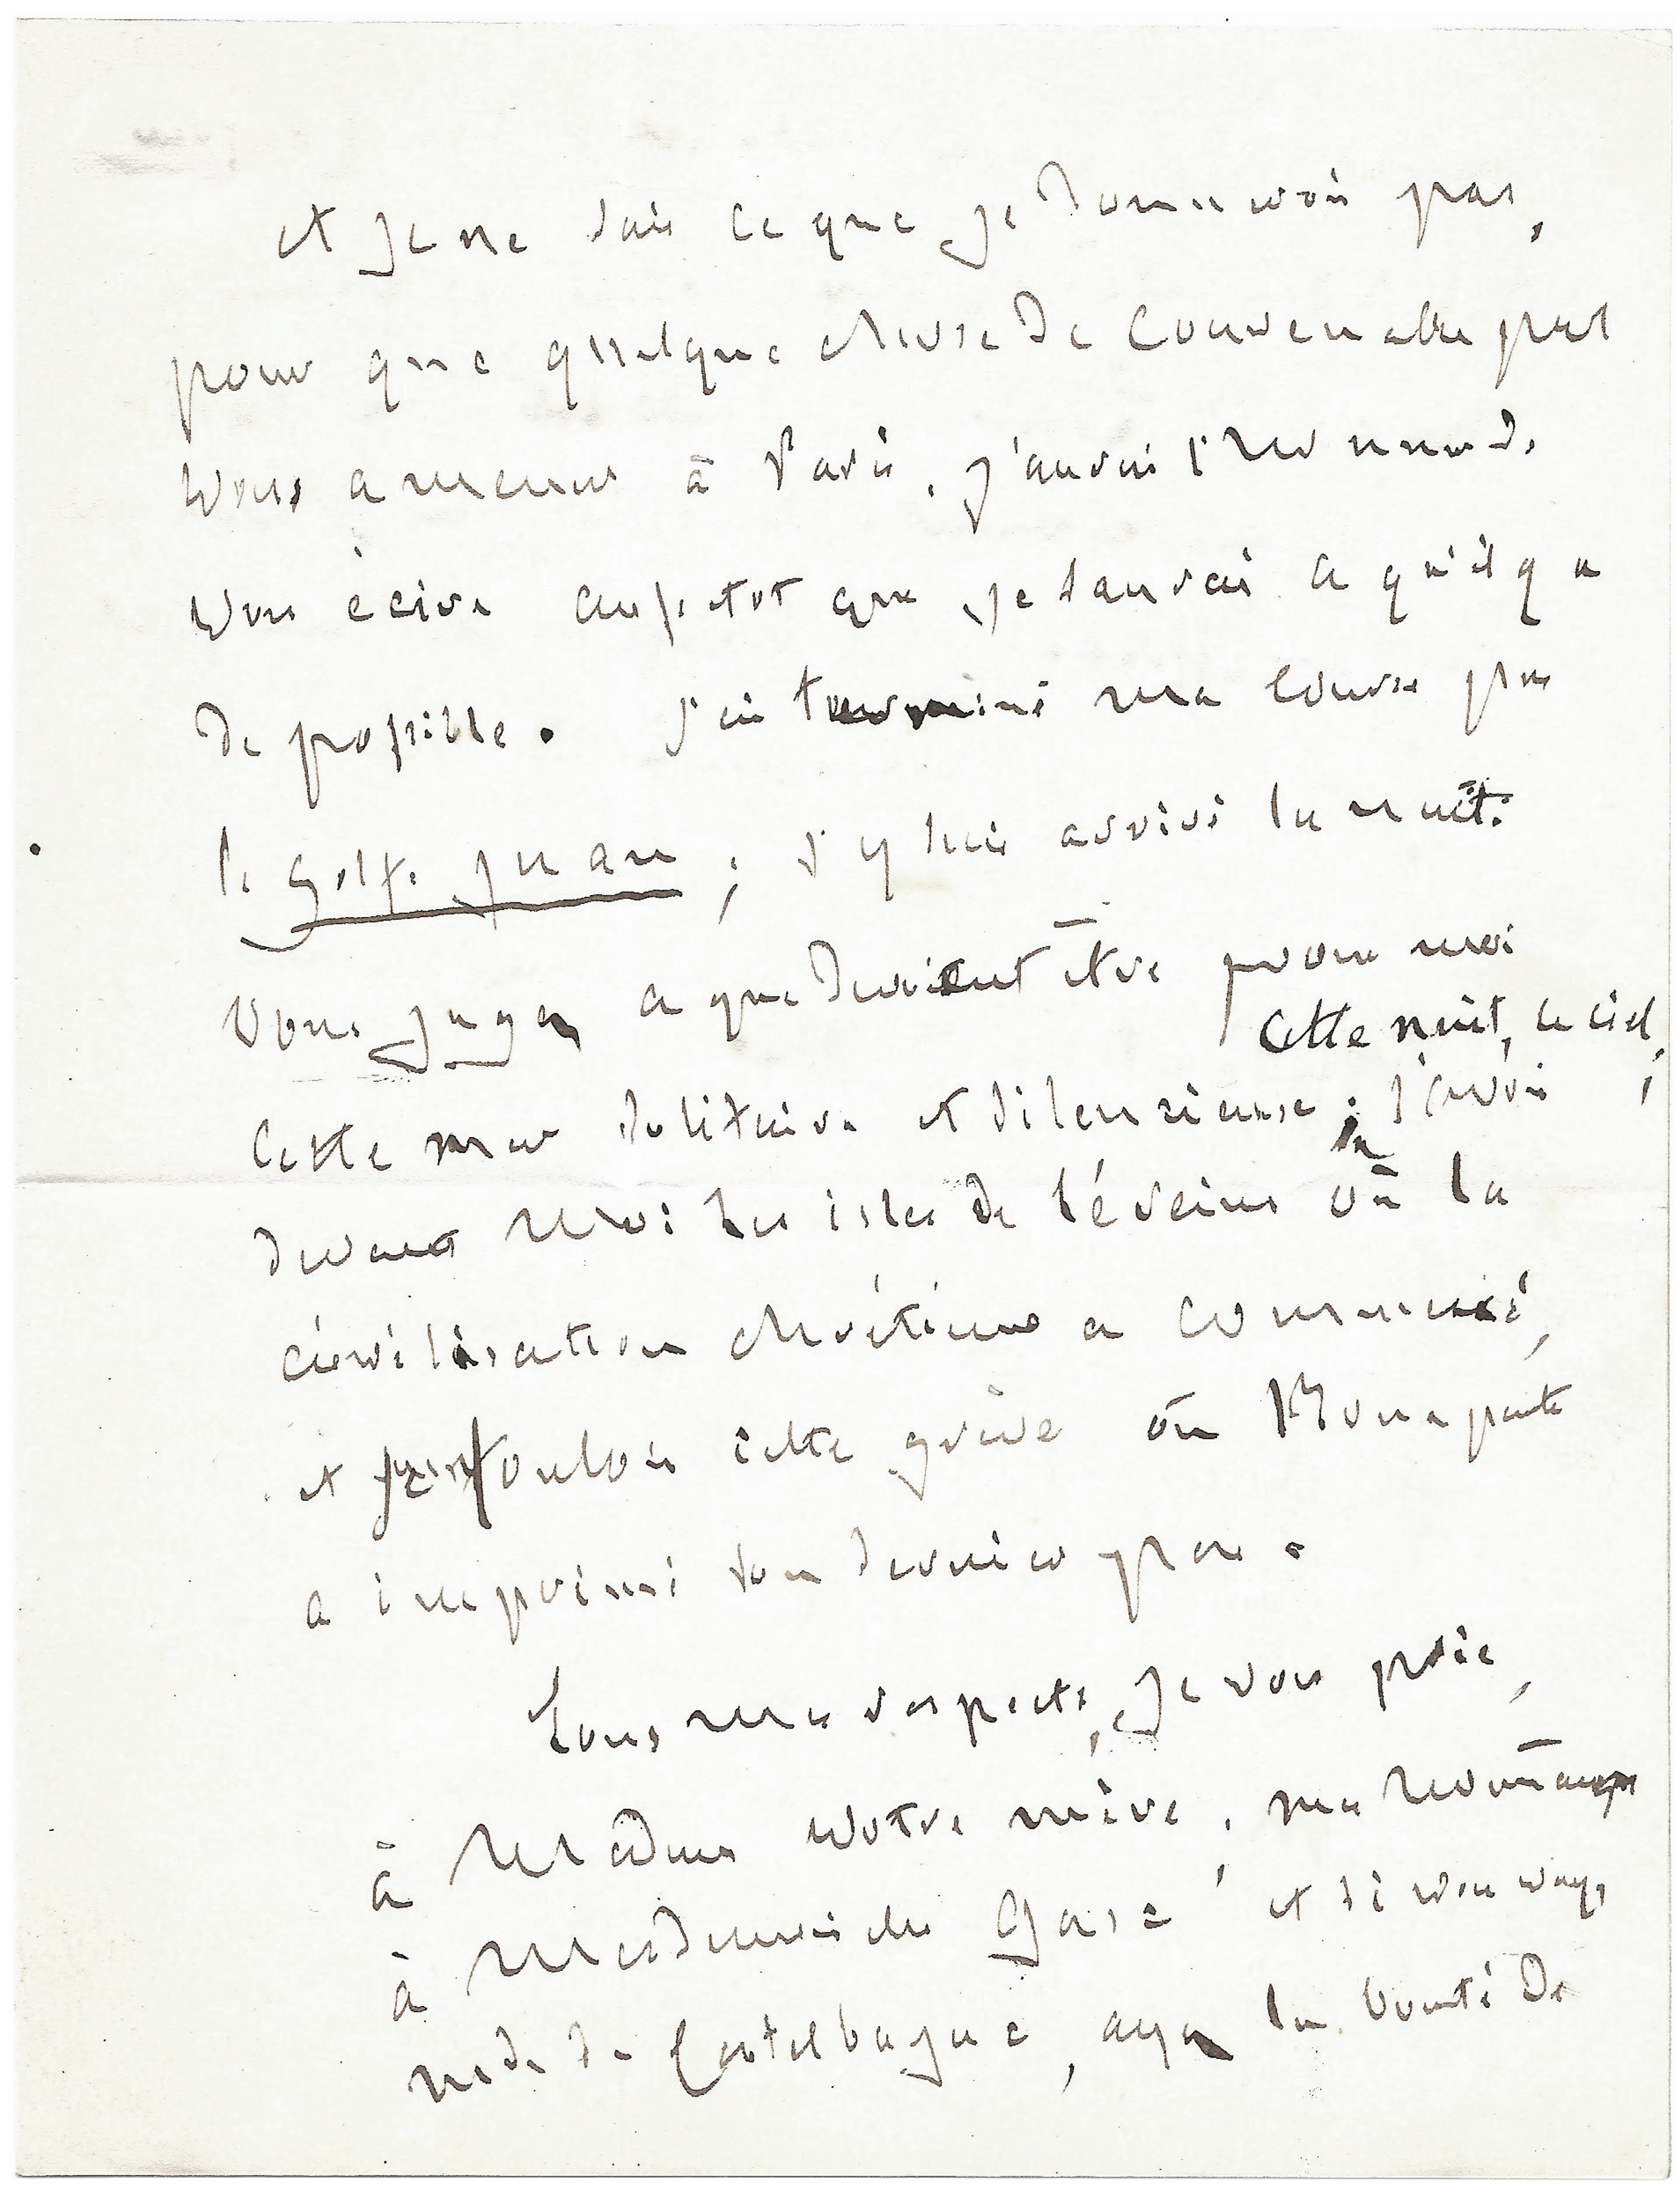 et je ne sais ce que je donnerois pas,
pour que quelque chose de convenable pût
vous amener à Paris. J'aurai l'honneur de
vous écrire aussitot que je saurai ce qu'il y a
de possible. J'ai terminé ma course par
le golfe Juan ; j'y suis arrivé la nuit.
Vous jugez ce que devoient être pour moi
cette nuit, ce ciel,
cette mer solitaire et silencieuse. J'avois
devant moi les isles de Léreins où la
civilisation chrétienne a commencé,
et je foulois cette grève où Bonaparte
a imprimé son dernier pas.
Tous mes respects, je vous prie,
à Madame votre mère, mes hommages
à Mademoiselle Honorine, et si vous voyez
mde de Castelbajac, ayez la bonté de